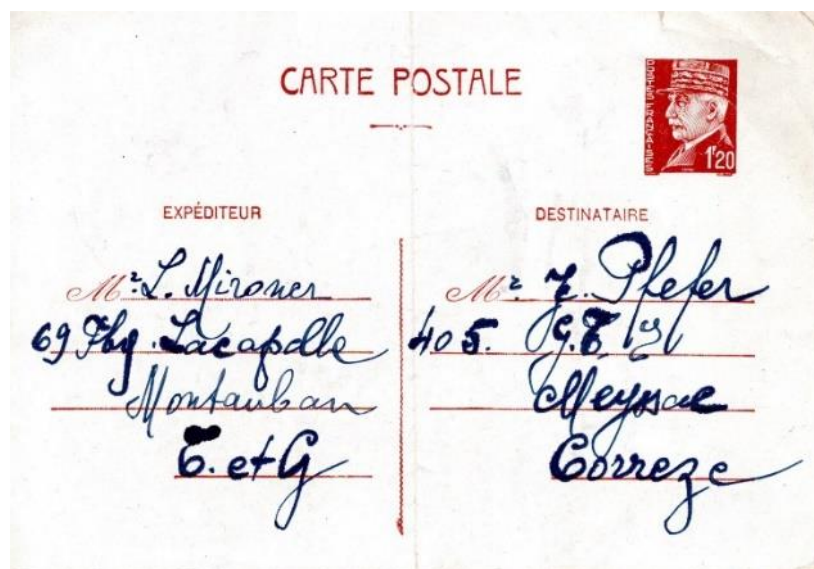 CARTE POSTALE
POSTES FRANÇAISES
1F20
EXPÉDITEUR
Mr. L. Mironer
69 Fbg. Lacapelle
Montauban
T. et G
DESTINATAIRE
Mr. Pfefer
405. G.T.
Meyssac
Correze